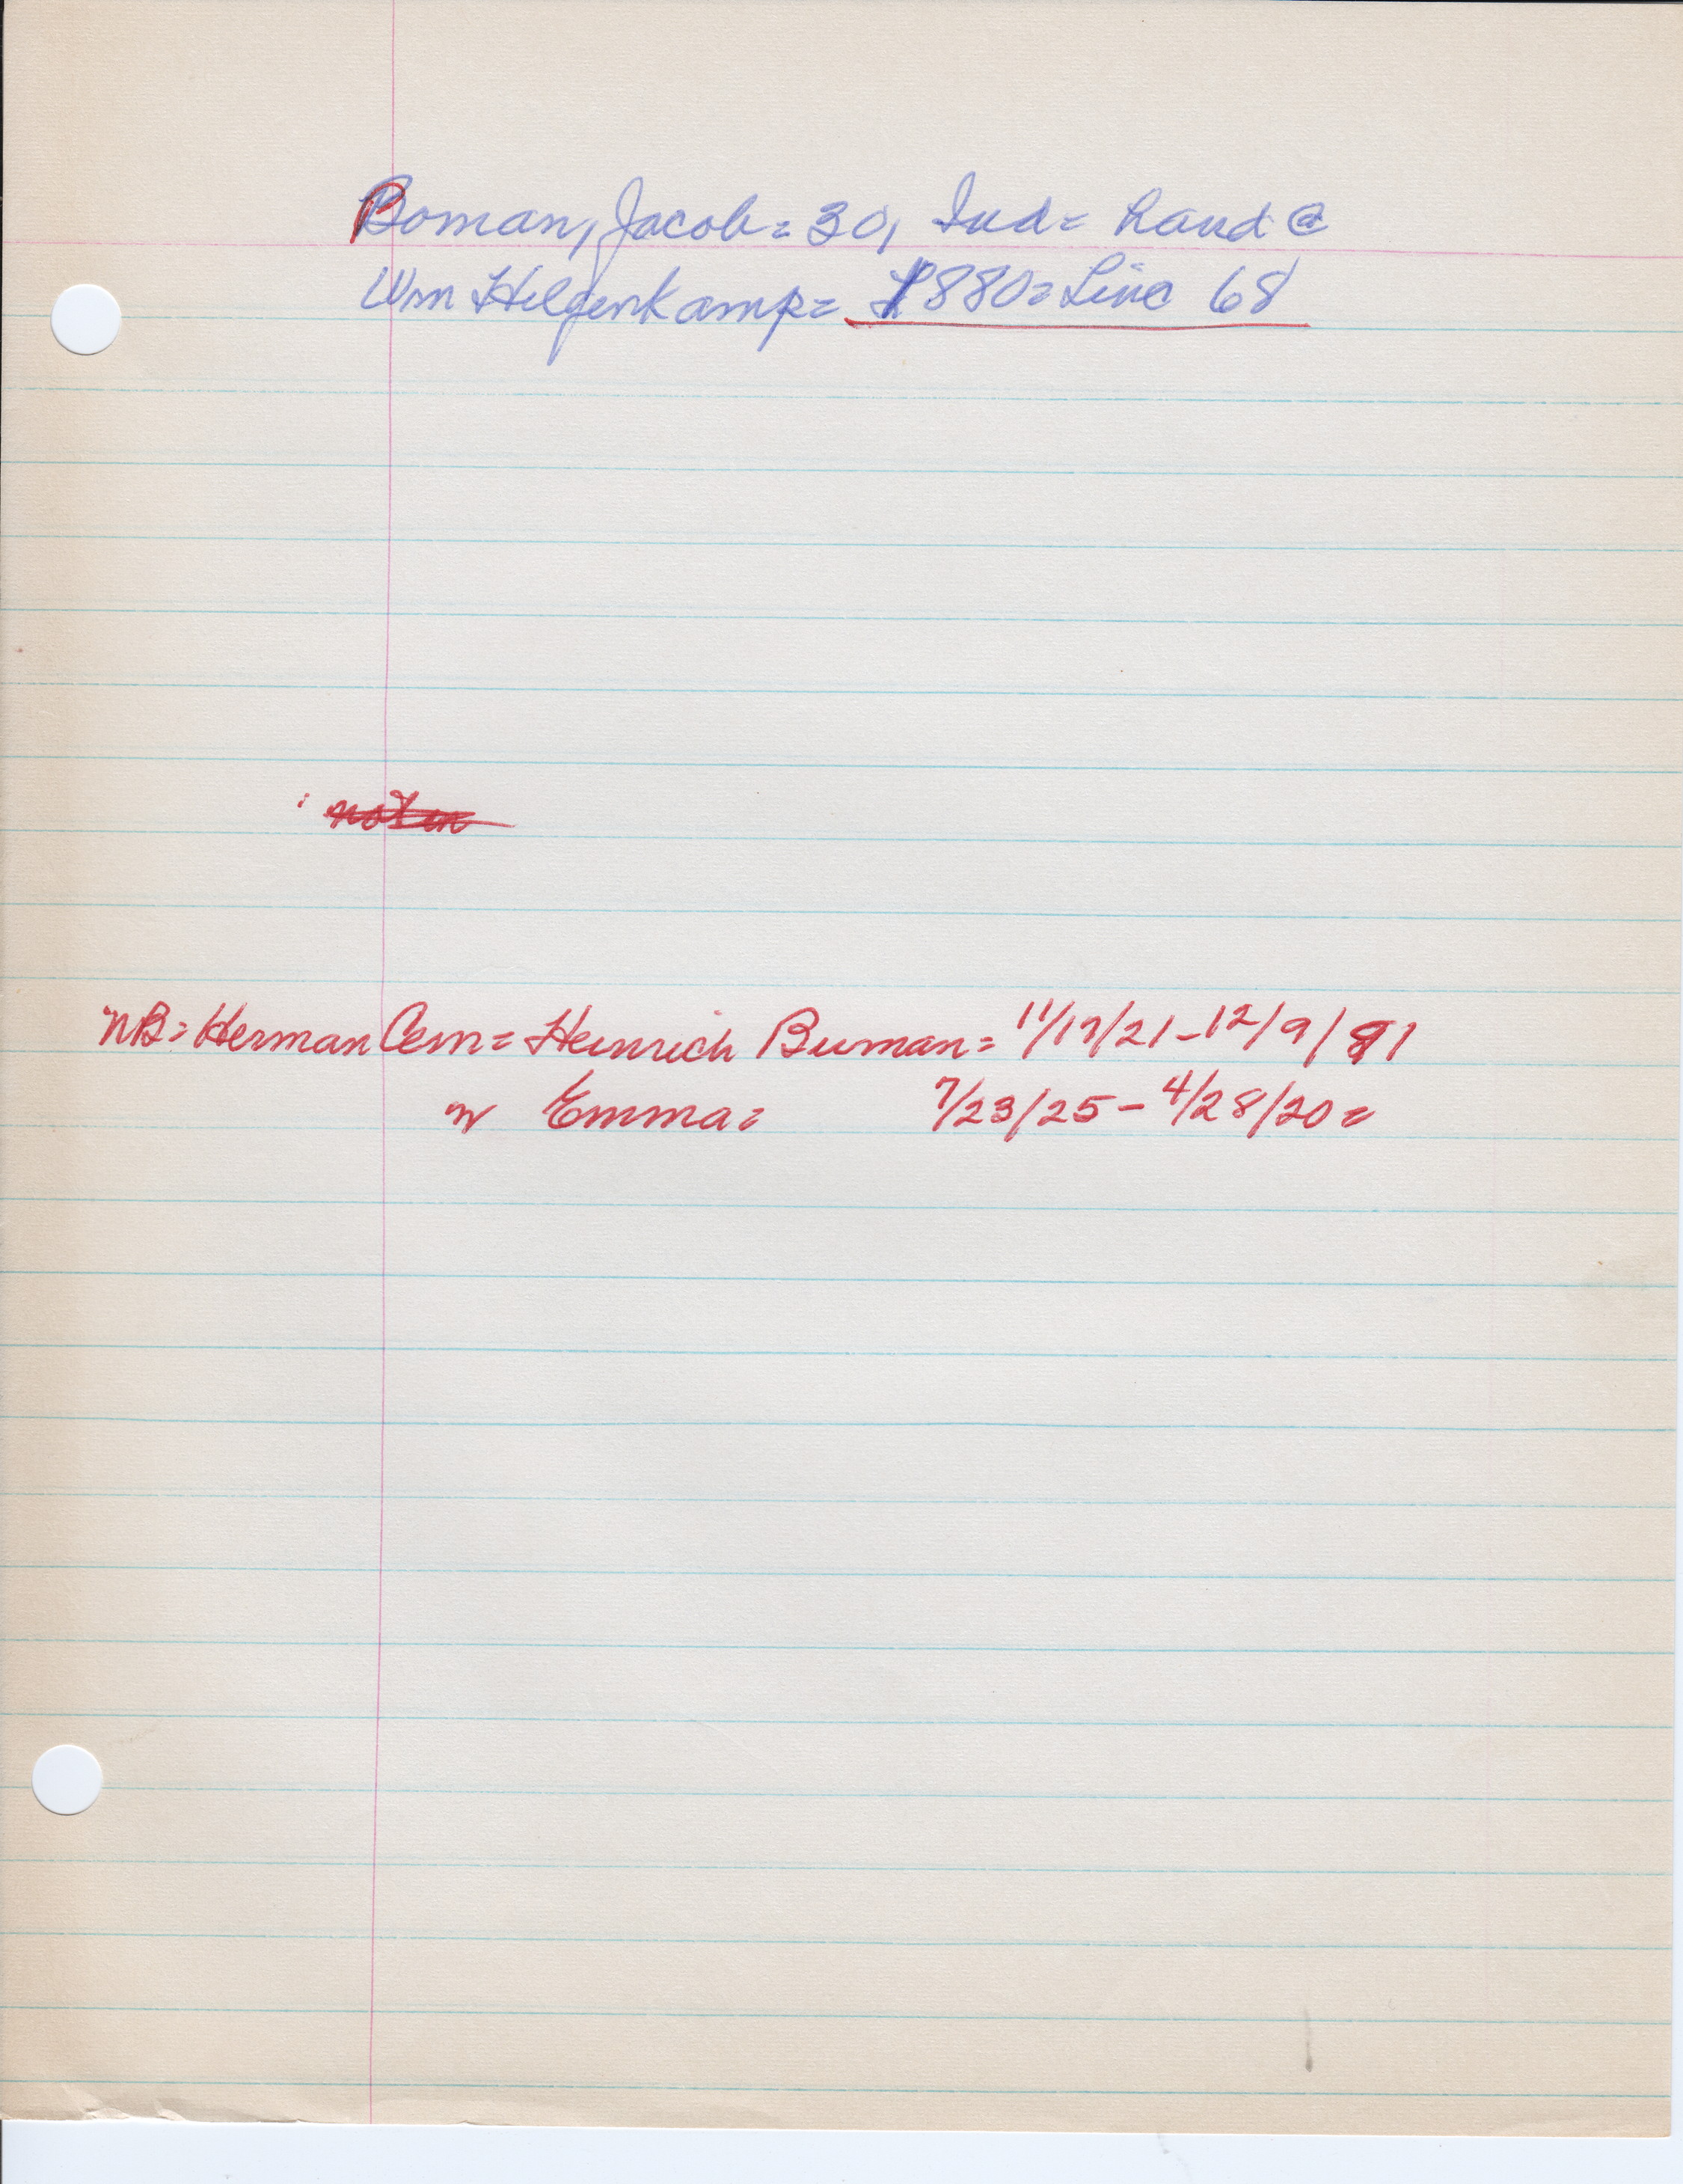 Boman, Jacob = 30, Ind = hand @
Wm Hilgenkamp = 1880 = Line 68
not in
NB = Herman Cem = Heinrich Buman = 11/17/21 - 12/9/91
w Emma = 7/23/25 - 4/28/20 =